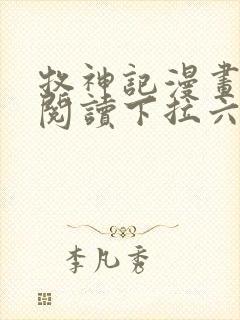 牧神記漫畫
閱讀下拉六
李凡秀